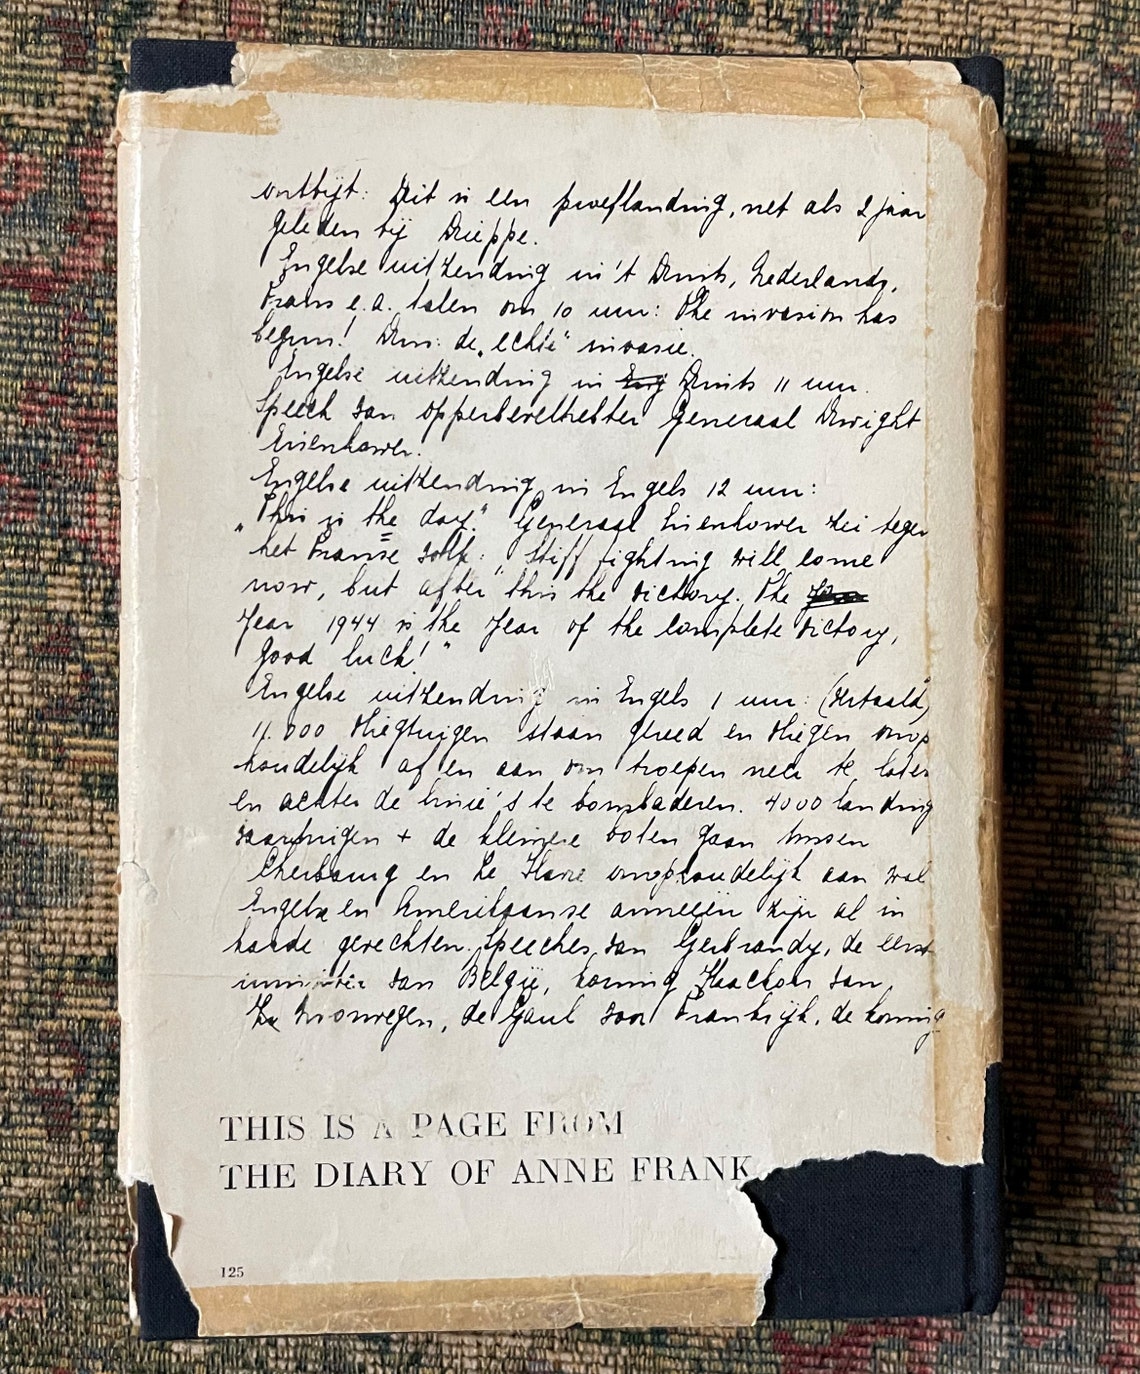 ontbijt: Dit is een proeflanding, net als 2 jaar
geleden bij Dieppe.
Engelse uitzending in 't Duits, Nederlands,
Frans e.a. talen om 10 uur: The invasion has
begun! Dus: de „echte" invasie.
Engelse uitzending in Eng Duits 11 uur.
Speech van opperbevelhebber Generaal Dwight
Eisenhower.
Engelse uitzending in Engels 12 uur:
„This is the day." Generaal Eisenhower zei tegen
het Franse volk: „Stiff fighting will come
now, but after this the victory. The
Year 1944 is the Year of the complete victory,
good luck!"
Engelse uitzending in Engels 1 uur: (vertaald)
11.000 vliegtuigen staan gereed en vliegen onop
houdelijk af en aan om troepen neer te laten
en achter de linie's te bombaderen. 4000 landing
vaartuigen + de kleinere boten gaan tussen
Cherbourg en Le Havre onophoudelijk aan wal
Engelse en Amerikaanse armeeën zijn al in
harde gevechten. Speeches van Gerbrandy, de eerst
minister van België, koning Haackon van
Noorwegen, de Gaul voor Frankrijk, de koning
THIS IS A PAGE FROM
THE DIARY OF ANNE FRANK
125